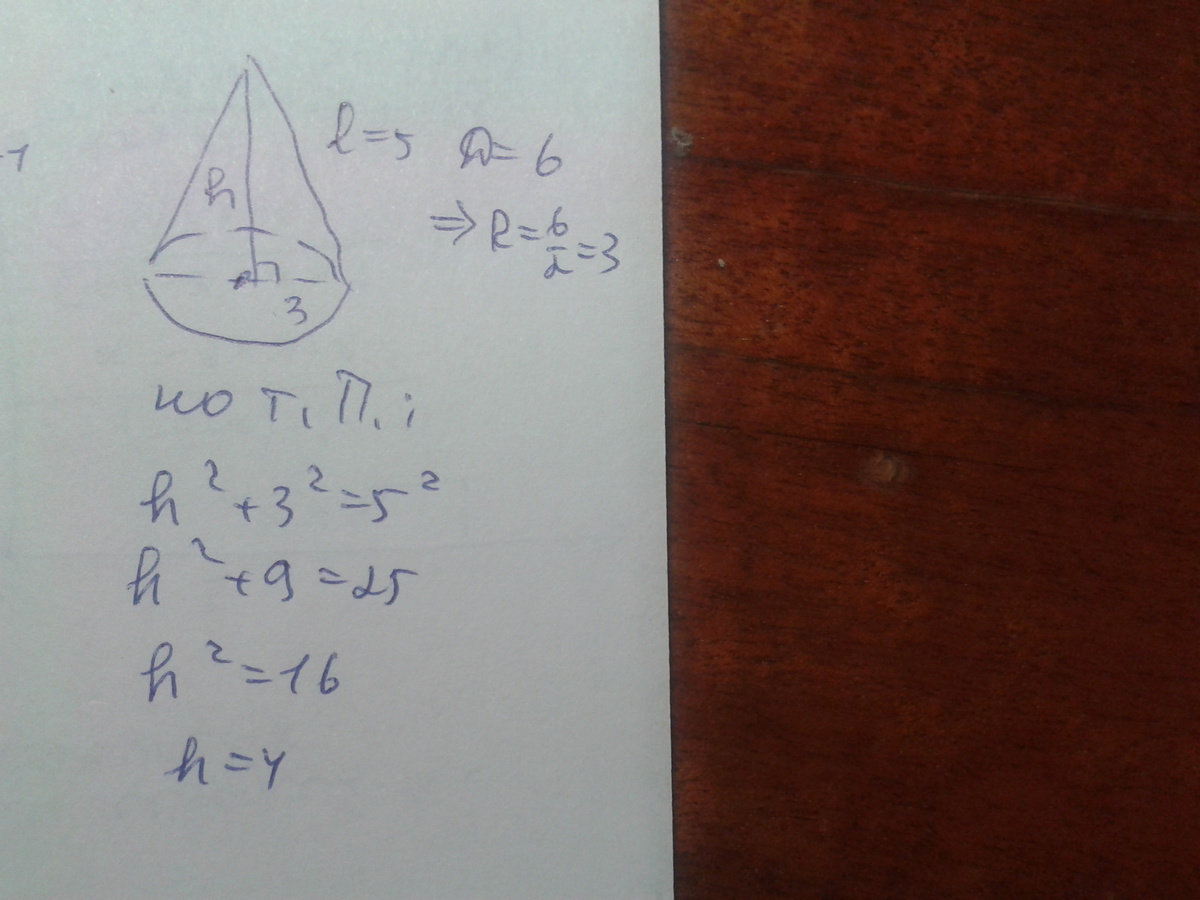 -1
h
l=5
D=6
⇒ R=6/2=3
3
по т. П.:
h²+3²=5²
h²+9=25
h²=16
h=4